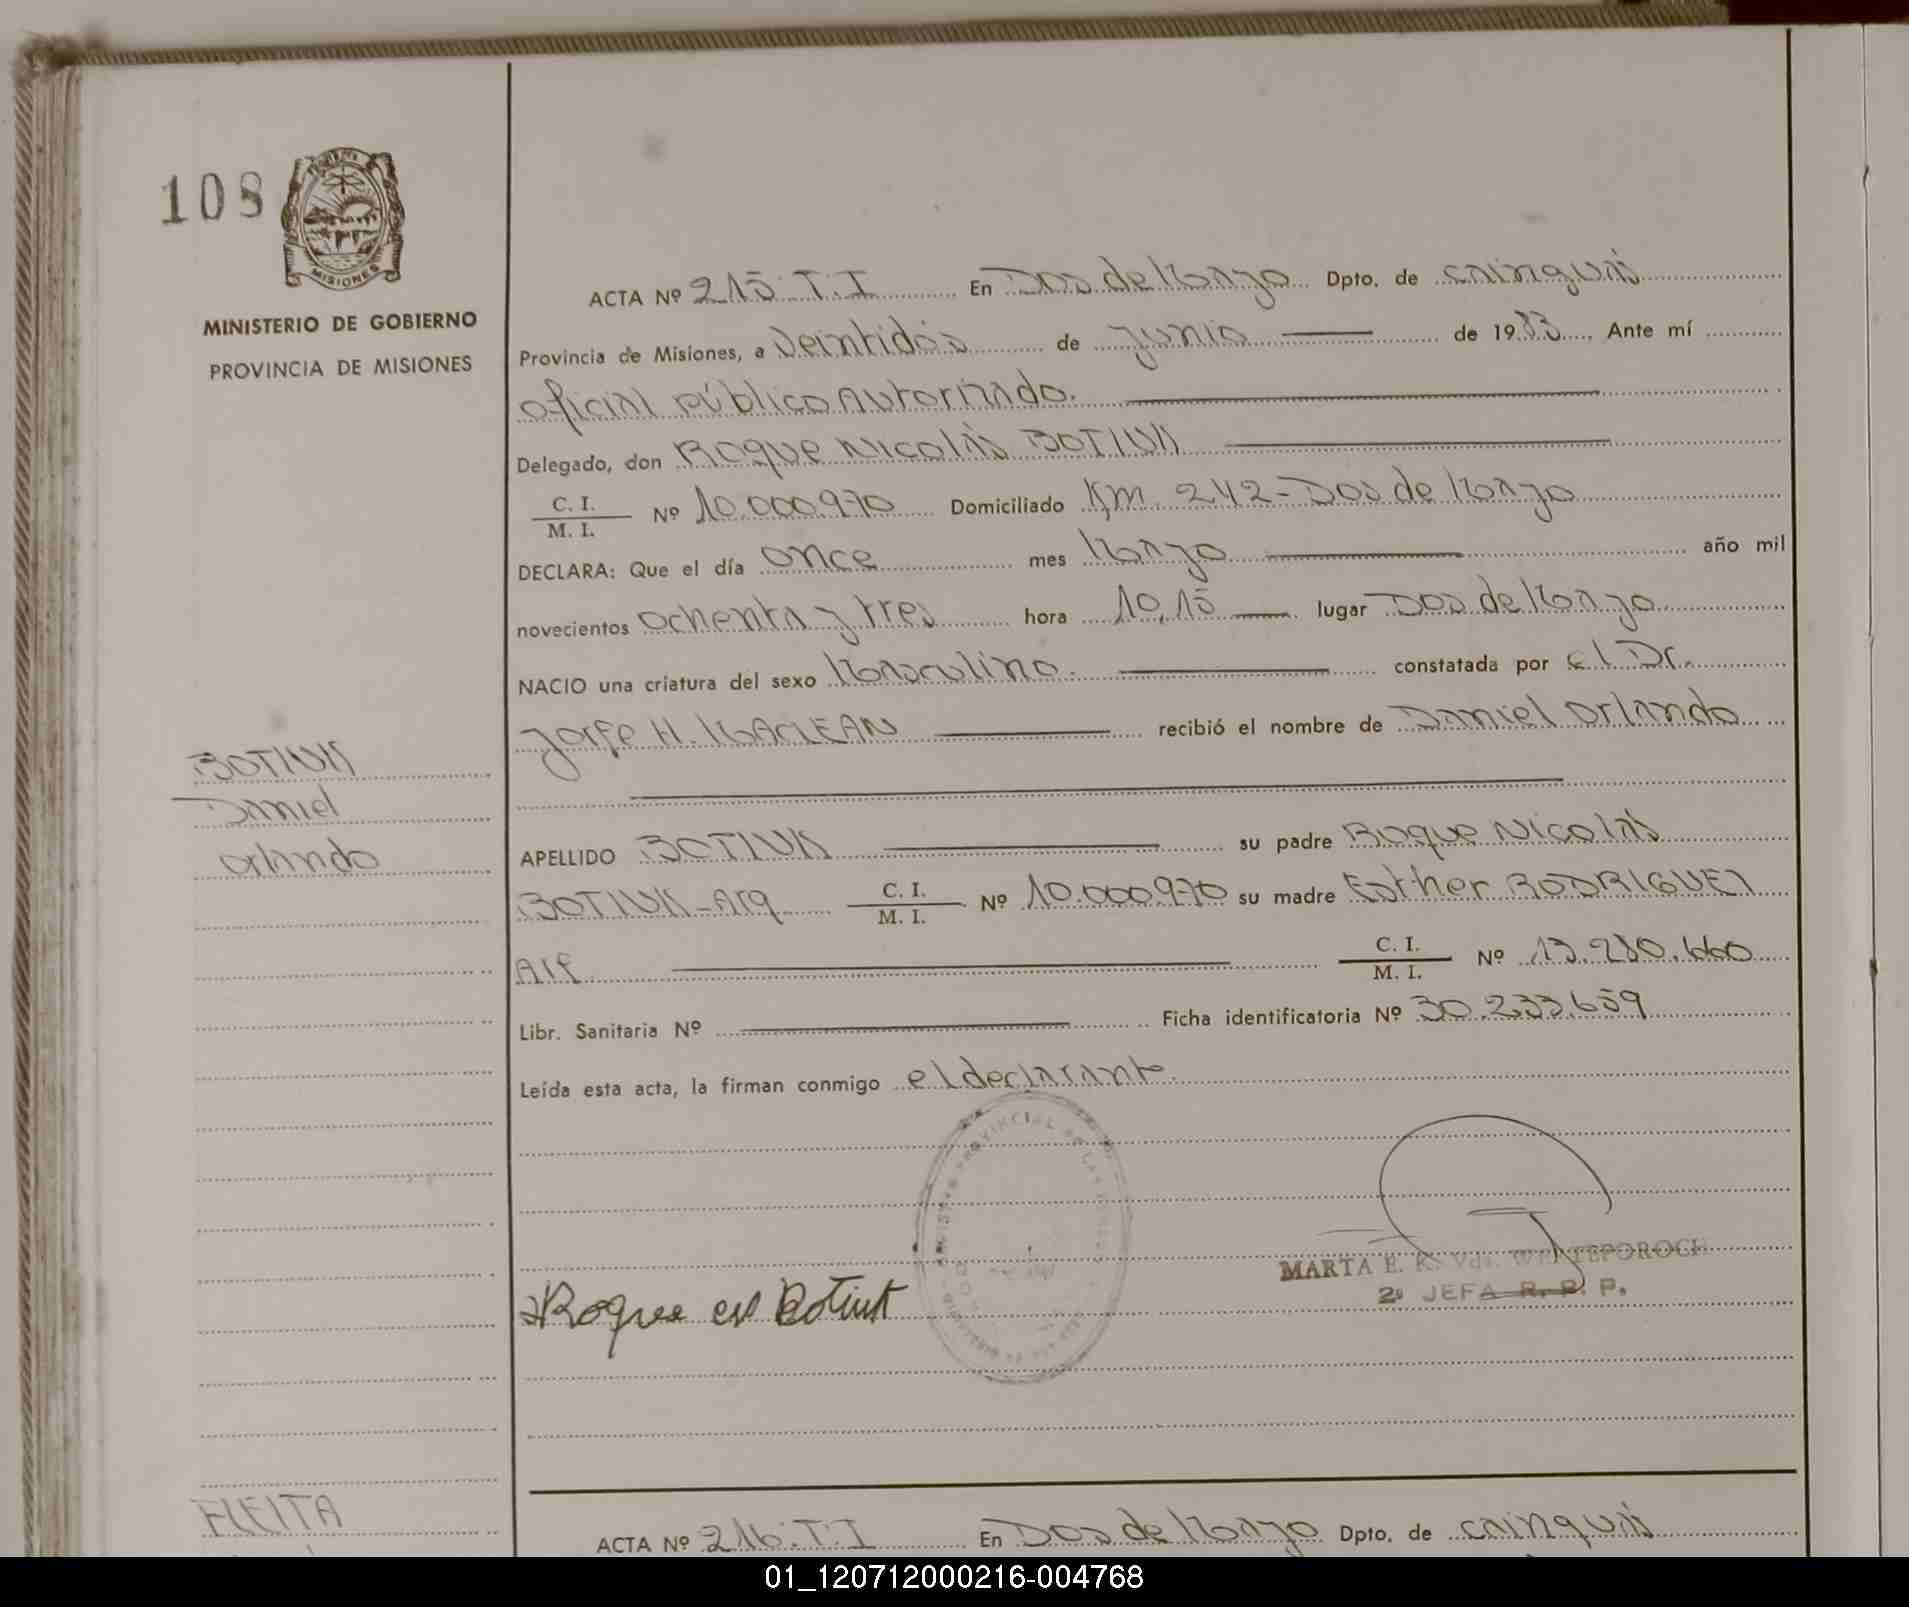 108
MISIONES
MINISTERIO DE GOBIERNO
PROVINCIA DE MISIONES
BOTIUK
Daniel
Orlando
ACTA Nº 215.T.I En Dos de Mayo Dpto. de Cainguás
Provincia de Misiones, a Veintidós de Junio de 1983 Ante mí
Oficial público autorizado.
Delegado, don Roque Nicolás BOTIUK
C. I.
M. I. Nº 10.000.970 Domiciliado Km. 242-Dos de Mayo
DECLARA: Que el día once mes Mayo año mil
novecientos ochenta y tres hora 10,15 lugar Dos de Mayo
NACIO una criatura del sexo Masculino. constatada por el Dr.
Jorge H. MACLEAN recibió el nombre de Daniel Orlando
APELLIDO BOTIUK su padre Roque Nicolás
BOTIUK-Arg C. I.
M. I. Nº 10.000.970 su madre Esther RODRIGUEZ
Arg C. I.
M. I. Nº 13.280.660
Libr. Sanitaria Nº Ficha identificatoria Nº 30.233.659
Leída esta acta, la firman conmigo el declarante.
PROVINCIAL DE LAS
Roque Botiuk
MARTA E. K. Vda. WENTEPOROCH
2º JEFA R. P. P.
FLEITA
ACTA Nº 216.T.I En Dos de Mayo Dpto. de Cainguás
01_120712000216-004768